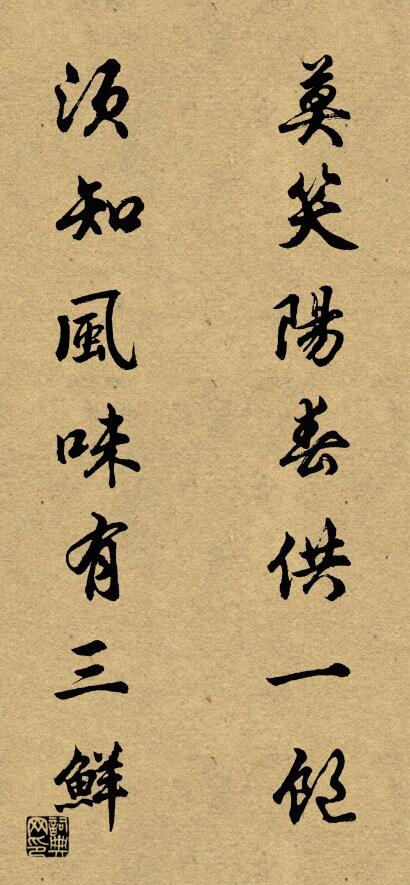 莫笑陽春供一飽
須知風味有三鮮
詞典網印